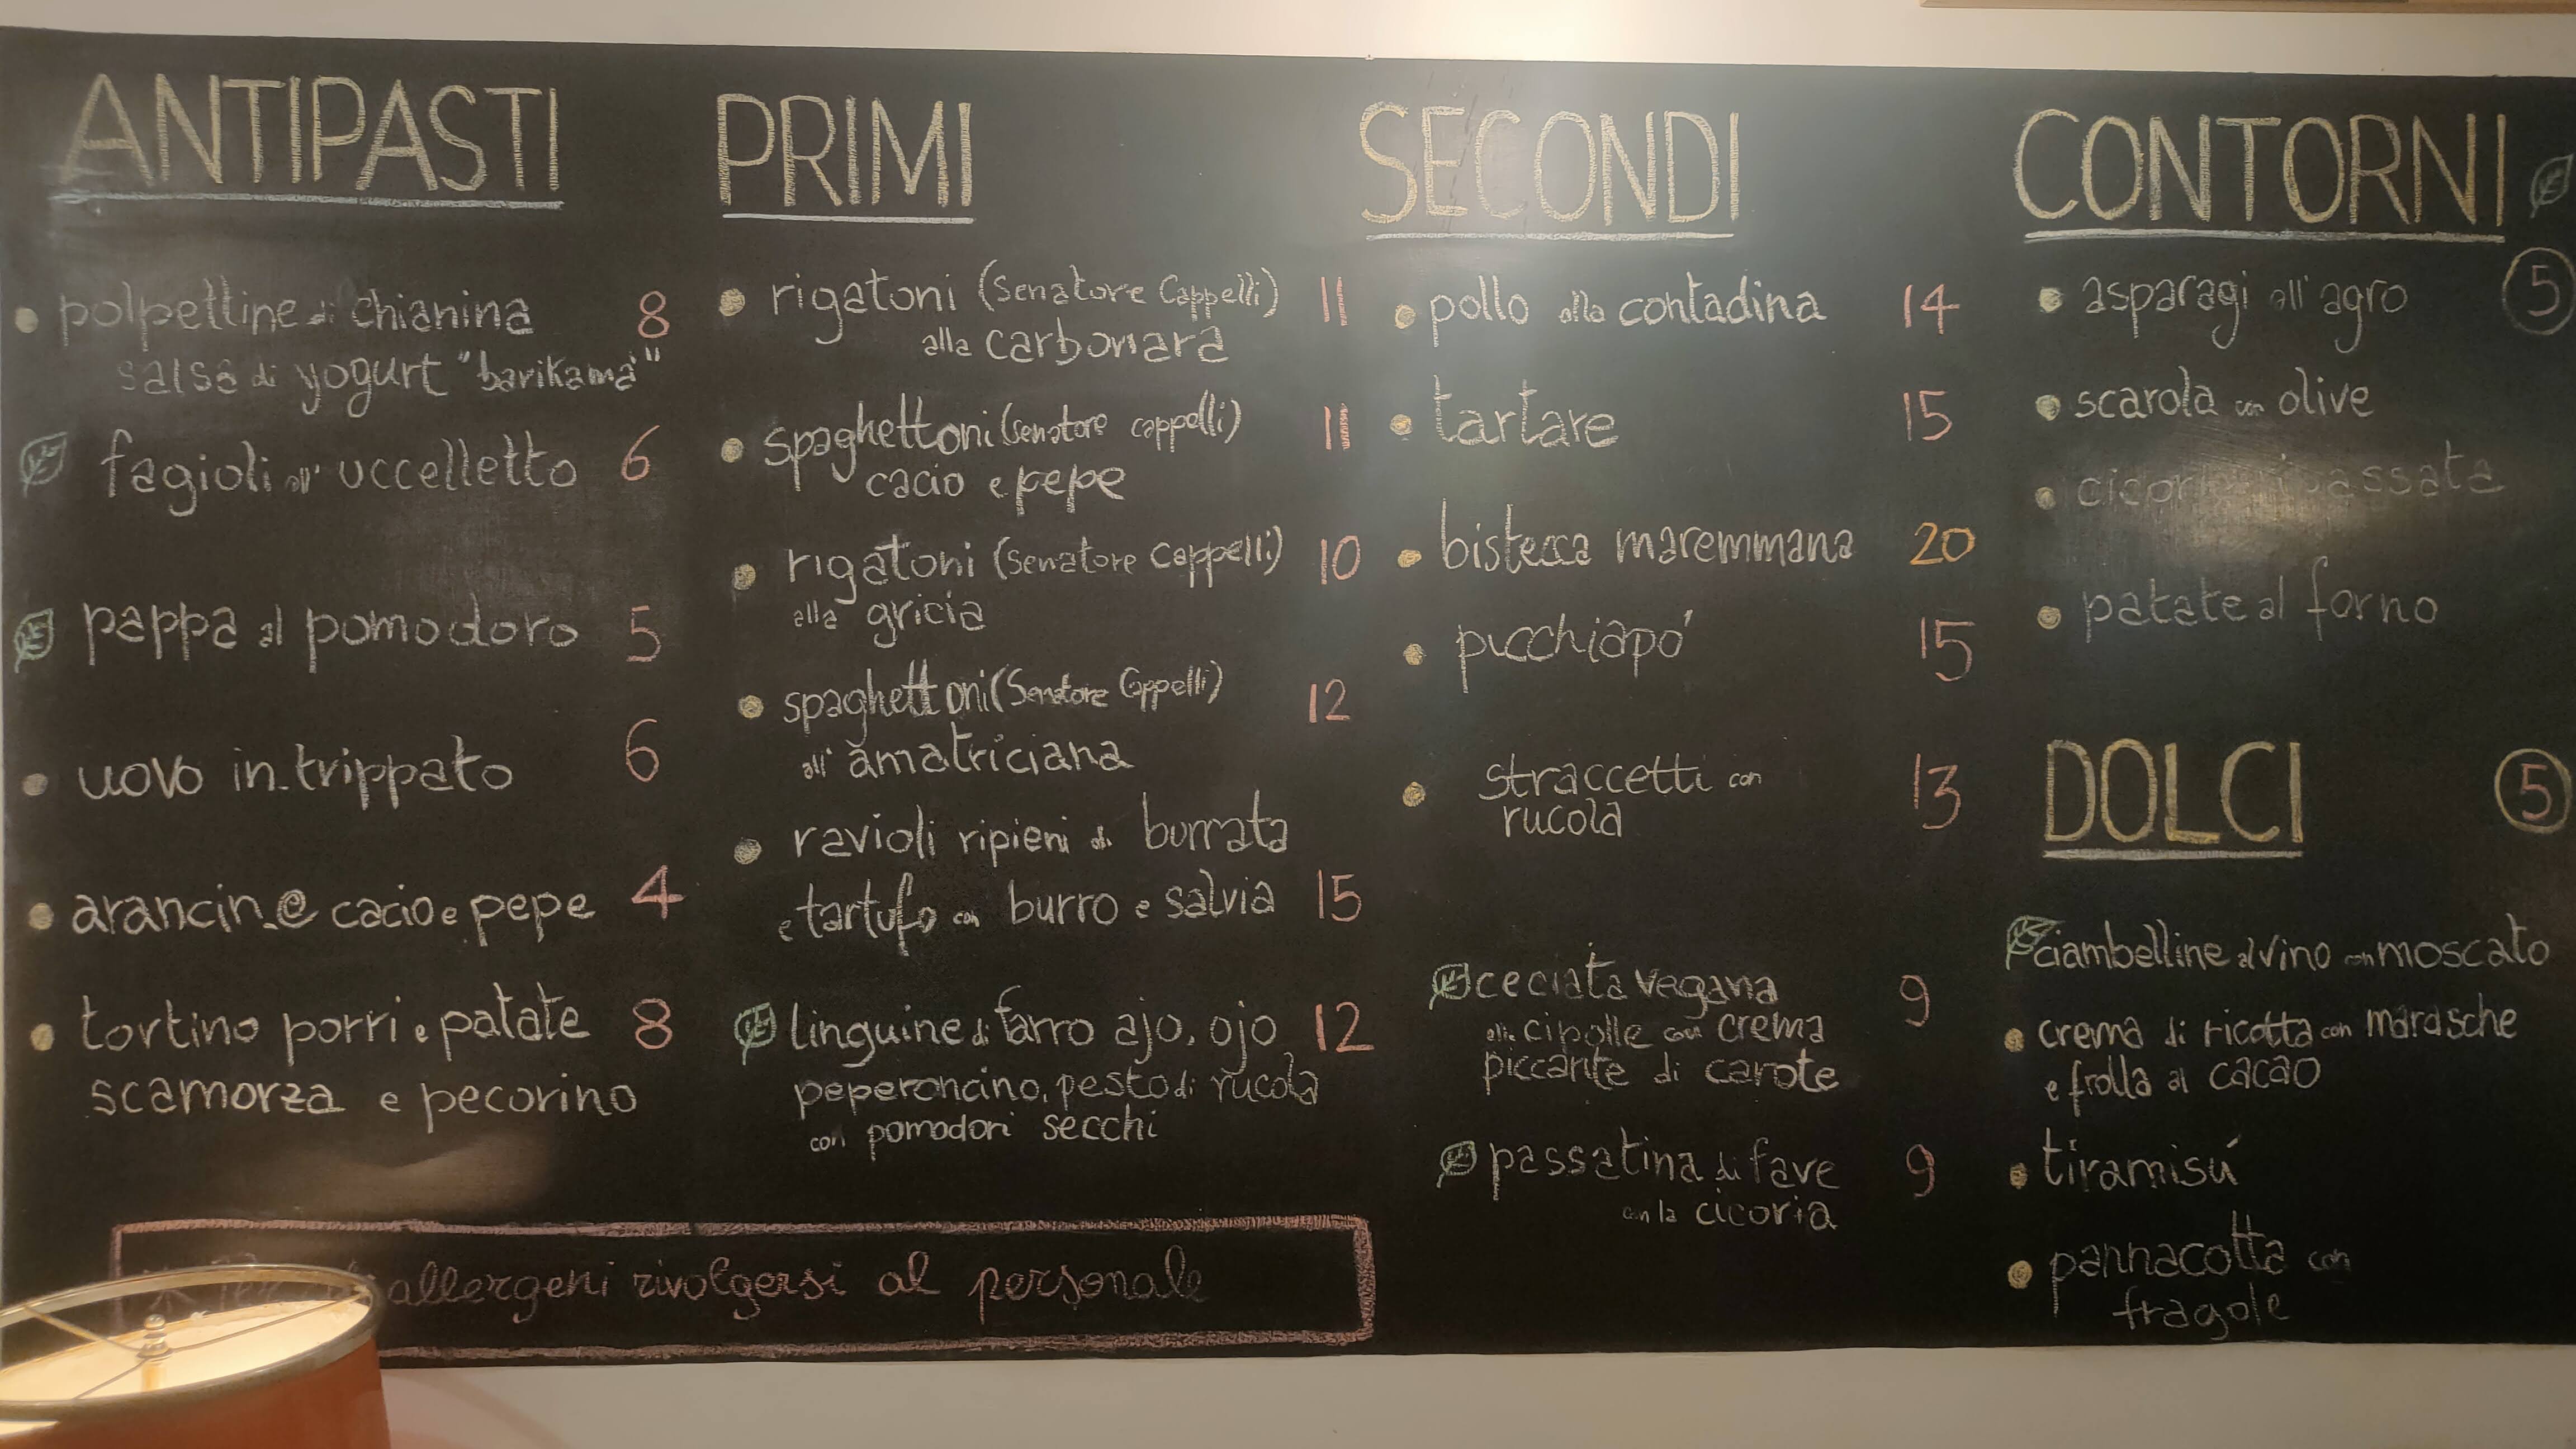 ANTIPASTI
polpettine di chianina 8
salsa di yogurt "barikamà"
fagioli all' uccelletto 6
pappa al pomodoro 5
uovo in trippato 6
arancin@ cacio e pepe 4
tortino porri e patate 8
scamorza e pecorino
PRIMI
rigatoni (Senatore Cappelli) 11
alla carbonara
spaghettoni (senatore cappelli) 11
cacio e pepe
rigatoni (Senatore Cappelli) 10
alla gricia
spaghettoni (Senatore Cappelli) 12
all' amatriciana
ravioli ripieni di burrata
e tartufo con burro e salvia 15
linguine di farro ajo, ojo 12
peperoncino, pesto di rucola
con pomodori secchi
SECONDI
pollo alla contadina 14
tartare 15
bistecca maremmana 20
picchiapo' 15
straccetti con 13
rucola
ceciata vegana 9
alle cipolle con crema
piccante di carote
passatina di fave 9
con la cicoria
CONTORNI
5
asparagi all' agro
scarola con olive
cicoria ripassata
patate al forno
DOLCI 5
ciambelline al vino con moscato
crema di ricotta con marasche
e frolla al cacao
tiramisú
pannacotta con
fragole
allergeni rivolgersi al personale